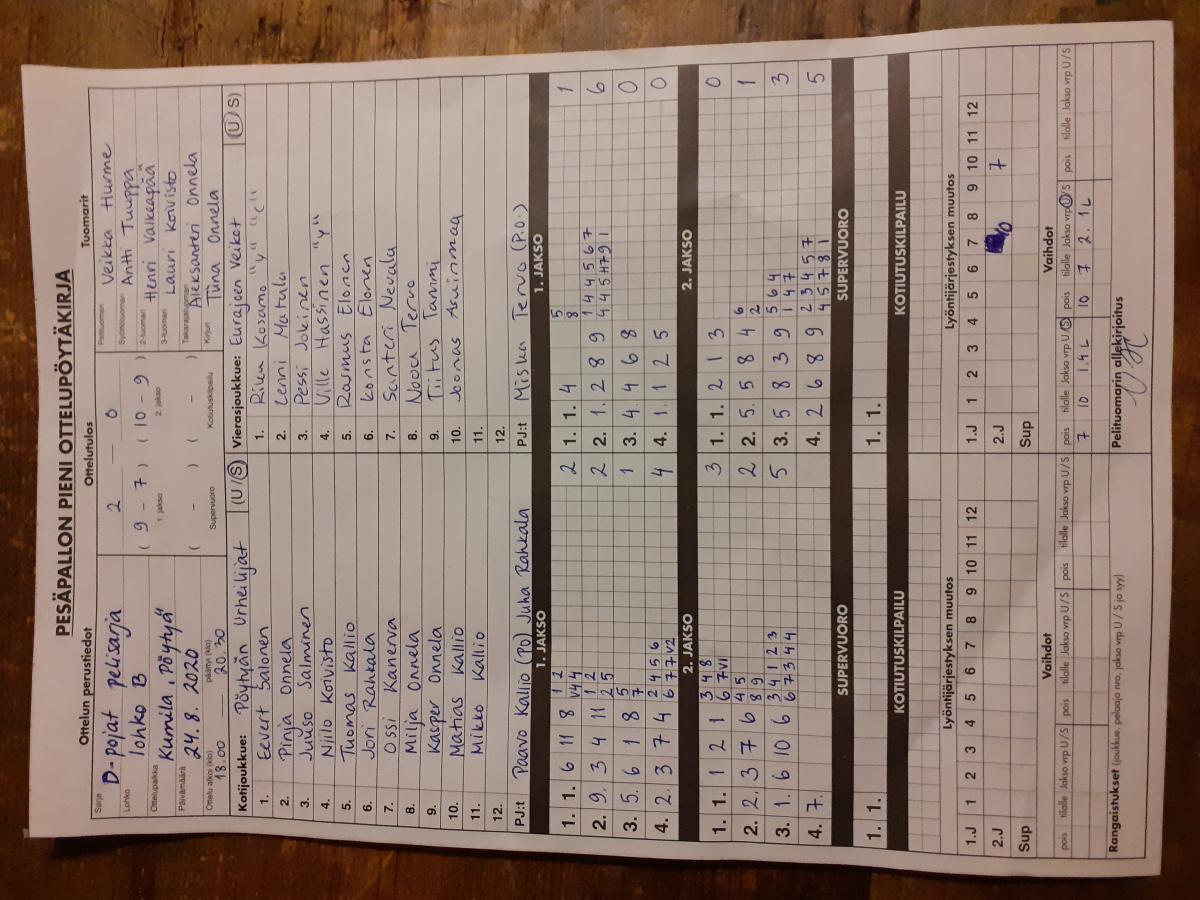 PESÄPALLON PIENI OTTELUPÖYTÄKIRJA
Ottelun perustiedot Ottelutulos Tuomarit
Sarja D-pojat pelisarja
Lohko lohko B
Ottelupaikka Kumila, Pöytyä
Päivämäärä 24.8.2020
Ottelu alkoi (klo) 18.00 — päättyi (klo) 20.30
2 — 0
( 9 - 7 ) ( 10 - 9 )
1. jakso 2. jakso
( - ) ( - )
Supervuoro Kotiutuskilpailu
Pelituomari Veikka Hurme
Syöttötuomari Antti Tuuppa
2-tuomari Henri Valkeapää
3-tuomari Lauri Koivisto
Takarajatuomari Aleksanteri Onnela
Kirjuri Tiina Onnela
Kotijoukkue: Pöytyän Urheilijat (U/S)
1. Eevert Salonen
2. Pinja Onnela
3. Juuso Salminen
4. Niilo Koivisto
5. Tuomas Kallio
6. Joni Rahkala
7. Ossi Kanerva
8. Milja Onnela
9. Kasper Onnela
10. Matias Kallio
11. Mikko Kallio
12.
PJ:t Paavo Kallio (PO) Juha Rahkala
Vierasjoukkue: Eurajoen Veikot (U/S)
1. Riku Kosamo "y" "c"
2. Lenni Matula
3. Pessi Jokinen
4. Ville Hassinen "y"
5. Rasmus Elonen
6. Konsta Elonen
7. Santeri Nevala
8. Nooa Tervo
9. Tiitus Tammi
10. Joonas
11.
12.
PJ:t Miska Tervo (P.O.)
1. JAKSO
1 2
V4 4
1. 1. 6 11 8 2
1 2
2 5
2. 9. 3 4 11 2
5
7
3. 5. 6 1 8 1
2 4 5 6
6 7 7 V2
4. 2. 3 7 4 4
2. JAKSO
3 4 8
6 7 V1
1. 1. 1 2 1 3
4 5
8 9
2. 2. 3 7 6 2
3 4 1 2 3
6 7 3 4 4
3. 1. 6 10 6 5
4. 7.
SUPERVUORO
1. 1.
KOTIUTUSKILPAILU
1. JAKSO
5
8
1. 1. 4 1
1 4 4 5 6 7
4 4 5 4 7 9 1
2. 1. 2 8 9 6
3. 4. 4 6 8 0
4. 1. 1 2 5 0
2. JAKSO
1. 1. 2 1 3 0
6
2
2. 5. 5 8 4 1
5 6 4
1 4 7
3. 5 8 3 9 3
2 3 4 5 7
4 5 7 8 1
4. 2 6 8 9 5
SUPERVUORO
1. 1.
KOTIUTUSKILPAILU
Lyöntijärjestyksen muutos
1.J 1 2 3 4 5 6 7 8 9 10 11 12
2.J
Sup
Vaihdot
pois tilalle Jakso vrp U/S pois tilalle Jakso vrp U/S pois tilalle Jakso vrp U/S
Rangaistukset (joukkue, pelaaja nro, jakso vrp U / S ja syy)
Lyöntijärjestyksen muutos
1.J 1 2 3 4 5 6 7 8 9 10 11 12
2.J 10 7
Sup
Vaihdot
pois tilalle Jakso vrp U/S pois tilalle Jakso vrp U/S pois tilalle Jakso vrp U/S
7 10 1.4L 10 7 2.1L
Pelituomarin allekirjoitus